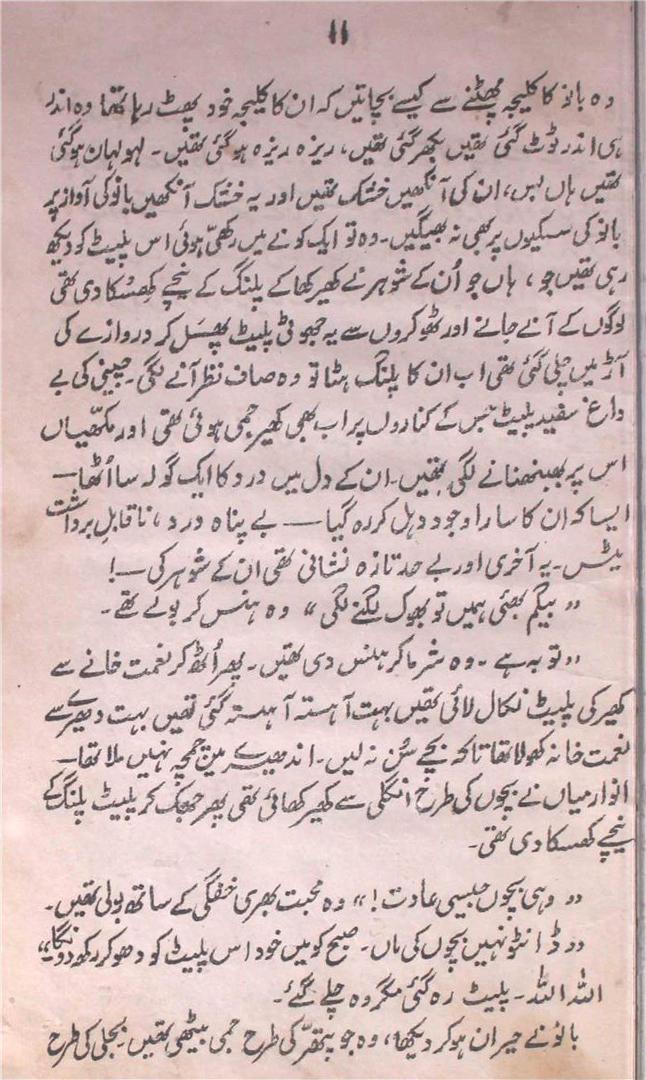 ۱۱
وہ بانو کا کلیجہ پھٹنے سے کیسے بچاتیں کہ ان کا کلیجہ خود پھٹ رہا تھا وہ اندر
ہی اندر ٹوٹ گئی تھیں بکھر گئی تھیں، ریزہ ریزہ ہو گئی تھیں۔ لہو لہان ہو گئی
تھیں ہاں بس، ان کی آنکھیں خشک تھیں اور یہ خشک آنکھیں بانو کی آواز پر
بانو کی سسکیوں پر بھی نہ بھیگیں۔ وہ تو ایک کونے میں رکھی ہوئی اس پلیٹ کو دیکھ
رہی تھیں جو، ہاں جو اُن کے شوہر نے کھیر کھا کے پلنگ کے نیچے کھسکا دی تھی
لوگوں کے آنے جانے اور ٹھوکروں سے یہ جھوٹی پلیٹ پھسل کر دروازے کی
آڑ میں چلی گئی تھی اب ان کا پلنگ ہٹا تو وہ صاف نظر آنے لگی۔ چینی کی بے
داغ سفید پلیٹ جس کے کناروں پر اب بھی کھیر جمی ہوئی تھی اور مکھیاں
اس پر بھنبھنانے لگی تھیں۔ ان کے دل میں درد کا ایک گولہ سا اُٹھا —
ایسا کہ ان کا سارا وجود دہل کر رہ گیا — بے پناہ درد، ناقابلِ برداشت
ٹیس۔ یہ آخری اور بے حد تازہ نشانی تھی ان کے شوہر کی —!
"بیگم بھئی ہمیں تو بھوک لگنے لگی" وہ ہنس کر بولے تھے۔
"توبہ ہے۔ وہ شرما کر ہنس دی تھیں۔ پھر اُٹھ کر نعمت خانے سے
کھیر کی پلیٹ نکال لائی تھیں بہت آہستہ آہستہ گئی تھیں بہت دھیرے سے
نعمت خانہ کھولا تھا تاکہ بچے سُن نہ لیں۔ اندھیرے میں چمچہ نہیں ملا تھا —
انوار میاں نے بچوں کی طرح انگلی سے کھیر کھائی تھی پھر جھک کر پلیٹ پلنگ کے
نیچے کھسکا دی تھی۔
"وہی بچوں جیسی عادت!" وہ محبت بھری خفگی کے ساتھ بولی تھیں۔
"ڈانٹو نہیں بچوں کی ماں۔ صبح کو میں خود اس پلیٹ کو دھو کر رکھ دونگا"
اللہ اللہ۔ پلیٹ رہ گئی مگر وہ چلے گئے۔
بانو نے حیران ہو کر دیکھا، وہ جو پتھر کی طرح جمی بیٹھی تھیں۔ بجلی کی طرح